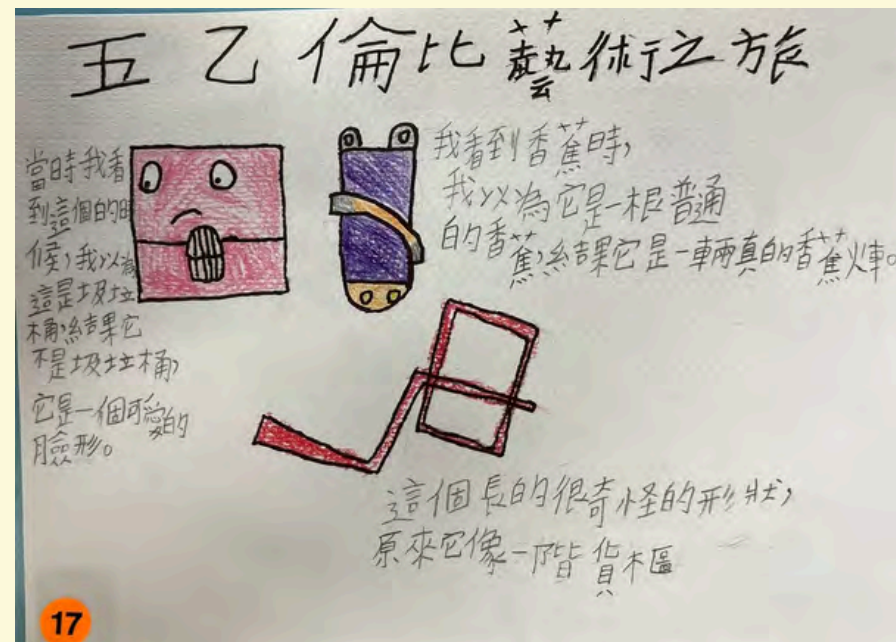 五乙倫比藝術之旅
當時我看
到這個的時
候，我以為
這是圾垃
桶，結果它
不是圾垃桶，
它是一個可愛的
臉形。
我看到香蕉時，
我以為它是一根普通
的香蕉，結果它是一輛真的香蕉火車。
這個長的很奇怪的形狀，
原來它像一階貨樞
17